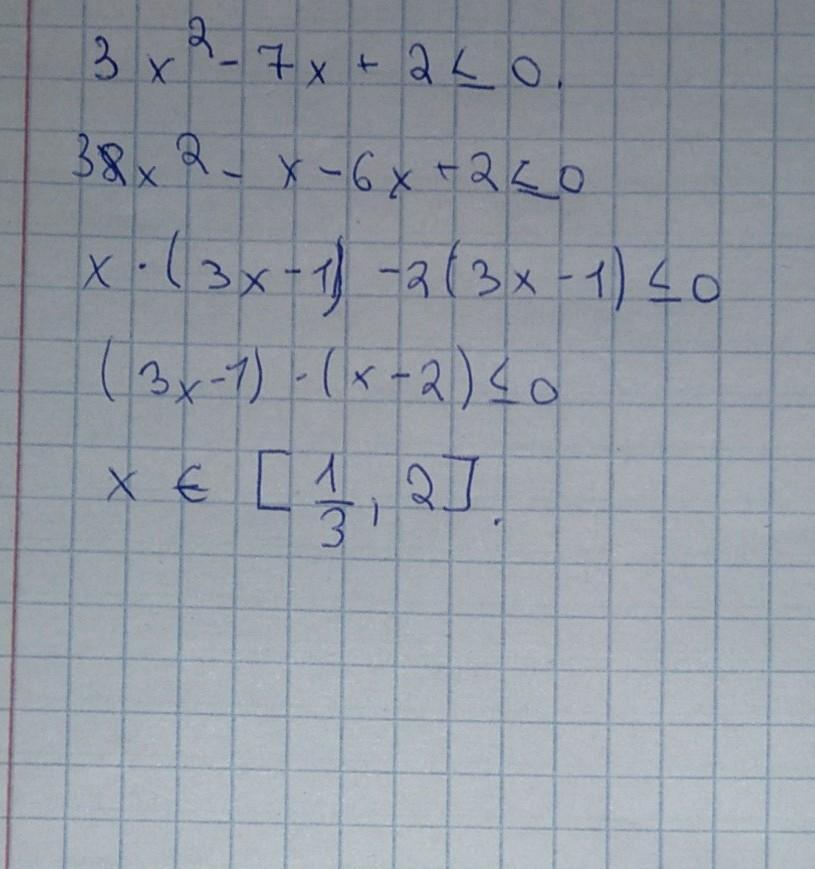 3x² - 7x + 2 ≤ 0.
3x² - x - 6x + 2 ≤ 0
x · (3x - 1) - 2(3x - 1) ≤ 0
(3x - 1) · (x - 2) ≤ 0
x ∈ [1/3, 2].